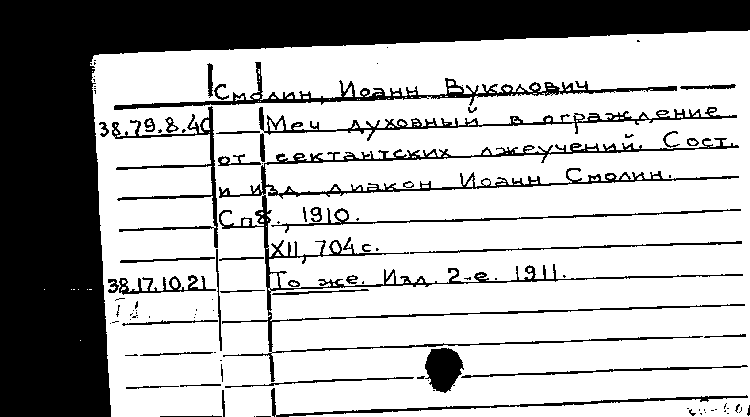 Смолин, Иоанн Вуколович
38.79.8.40 Меч духовный в ограждение
от сектантских лжеучений. Сост.
и изд. диакон Иоанн Смолин.
Спб., 1910.
XII, 704 с.
38.17.10.21 То же. Изд. 2-е. 1911.